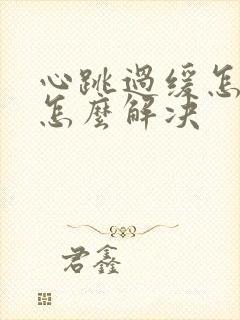 心跳過缓怎
怎麼解决
君鑫